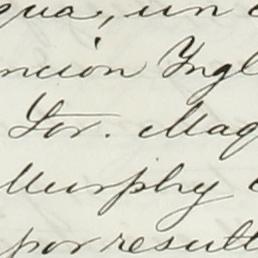 gua, un
nción Ingl
Sor. Mag
Murphy
por result